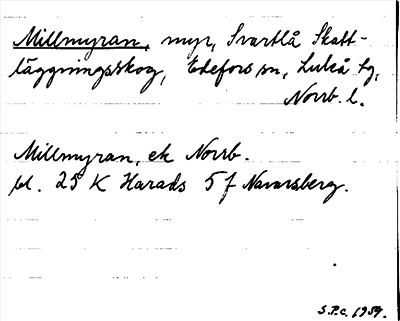 Millmyran, myr, Svartlå Skatt-
läggningsskog, Edefors sn, Luleå tg,
Norrb. l.
Millmyran, ek Norrb.
bl. 25 K Harads 5 f Navarsberg.
S.P.C. 1959.